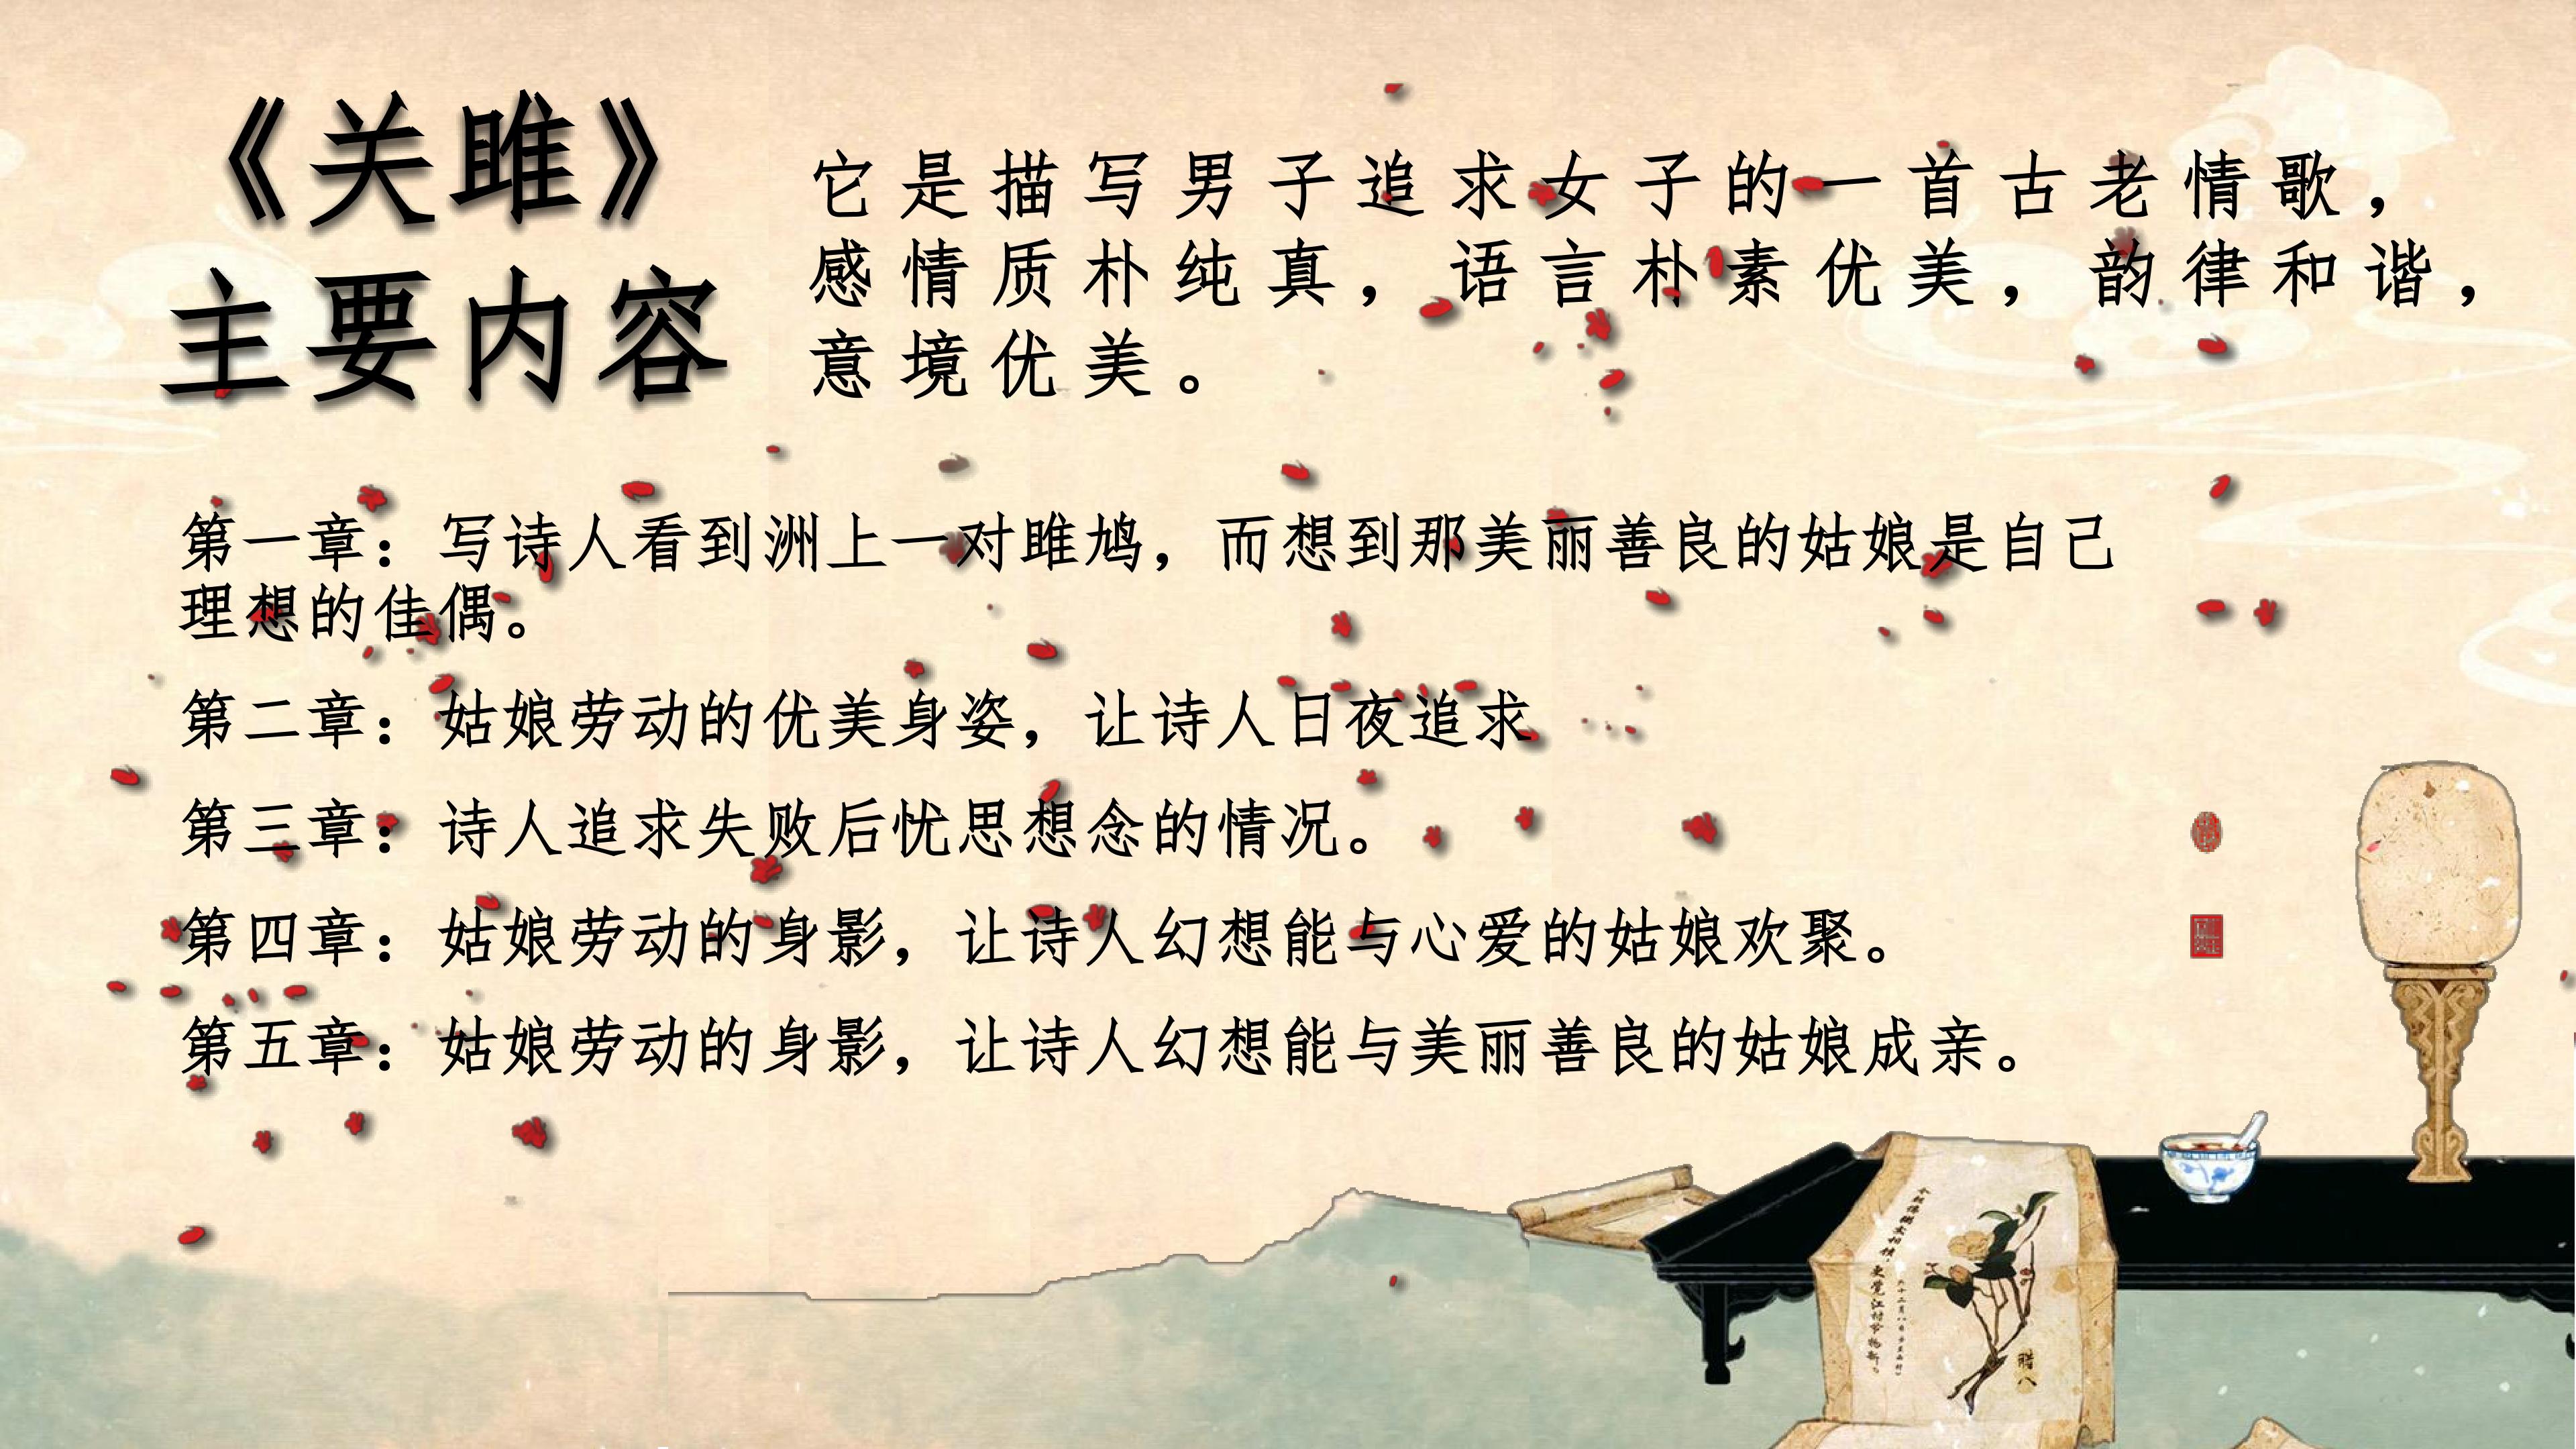 《关雎》
主要内容
它是描写男子追求女子的一首古老情歌，
感情质朴纯真，语言朴素优美，韵律和谐，
意境优美。
第一章：写诗人看到洲上一对雎鸠，而想到那美丽善良的姑娘是自己
理想的佳偶。
第二章：姑娘劳动的优美身姿，让诗人日夜追求
第三章：诗人追求失败后忧思想念的情况。
第四章：姑娘劳动的身影，让诗人幻想能与心爱的姑娘欢聚。
第五章：姑娘劳动的身影，让诗人幻想能与美丽善良的姑娘成亲。
腊八